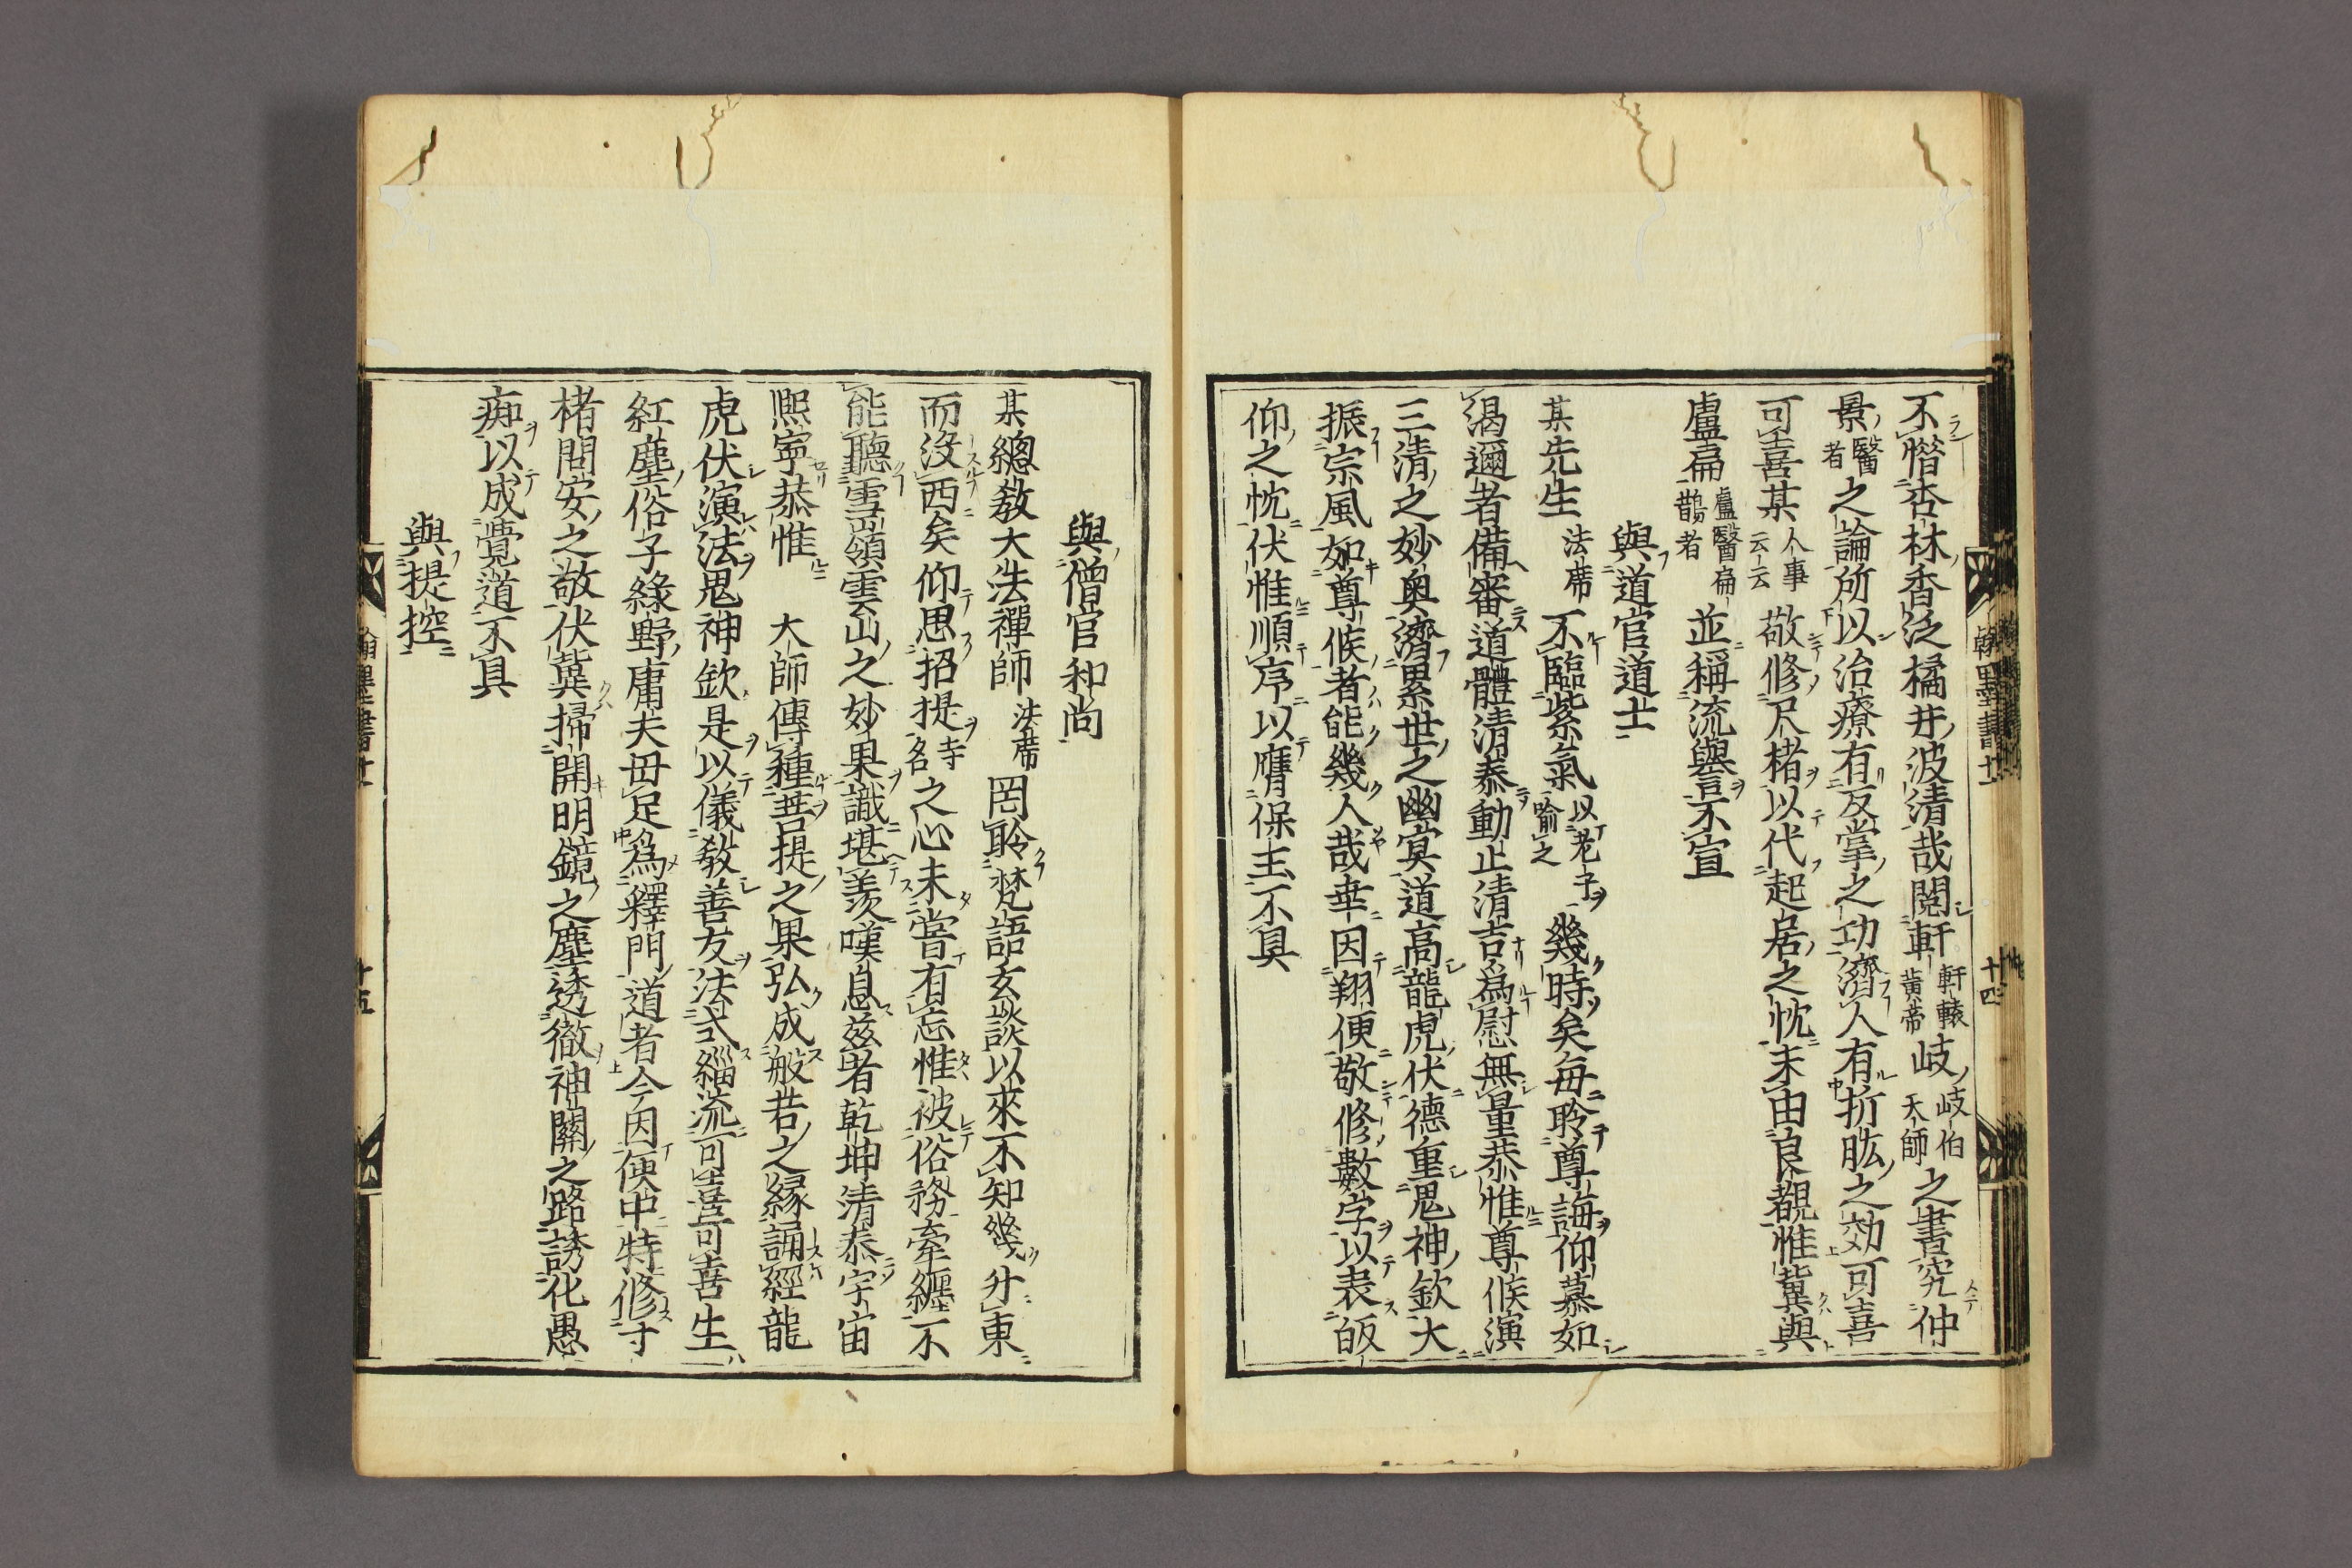 不僭杏林香泛橘井波清哉閲軒軒轅黄帝岐岐伯天師之書究仲
景醫者之論所以治療有反掌之功濟人有折肱之効可喜
可喜某人事云云敬修尺楮以代起居之忱未由良覿惟冀與
盧扁盧醫扁鵲者並稱流譽不宣
與道官道士
某先生法席不臨紫氣以老子喻之幾時矣每聆尊誨仰慕如
渴邇者備審道體清泰動止清吉爲慰無量恭惟尊候演
三清之妙奥濟累世之幽冥道高龍虎伏德重鬼神欽大
振宗風如尊候者能幾人哉玆因翔便敬修數字以表皈
仰之忱伏惟順序以膺保玉不具
翰墨書十
十四
與僧官和尚
某總教大法禪師法席罔聆梵語玄談以來不知幾升東
而沒西矣仰思招提寺名之心未嘗有忘惟被俗務牽纏不
能聽雪嶺雲山之妙果識堪羨嘆息兹者乾坤清泰宇宙
熙寧恭惟大師傳種菩提之果弘成般若之緣誦經龍
虎伏演法鬼神欽是以儀教善友法式緇流可喜可喜生
紅塵俗子緑野庸夫毋足爲釋門道者今因便中特修寸
楮問安之敬伏冀掃開明鏡之塵透徹神關之路誘化愚
痴以成覺道不具
與提控
翰墨書十
十五